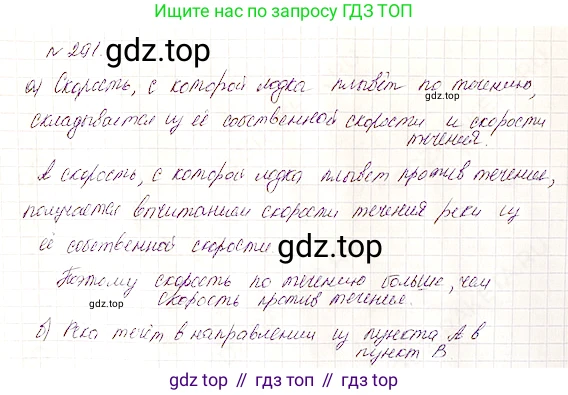 Ищите нас по запросу ГДЗ ТОП
N 291.
gdz.top
а) Скорость, с которой лодка плывёт по течению,
gdz.top
складывается из её собственной скорости и скорости
течения.
А скорость, с которой лодка плывет против течение,
gdz.top
получается вычитанием скорости течения реки из
её собственной скорости
gdz.top
Поэтому скорость по течению больше, чем
gdz.top
скорость против течения.
б) Река течёт в направлении из пункта А в
gdz.top
пункт В
gdz top // гдз топ // gdz top // гдз топ